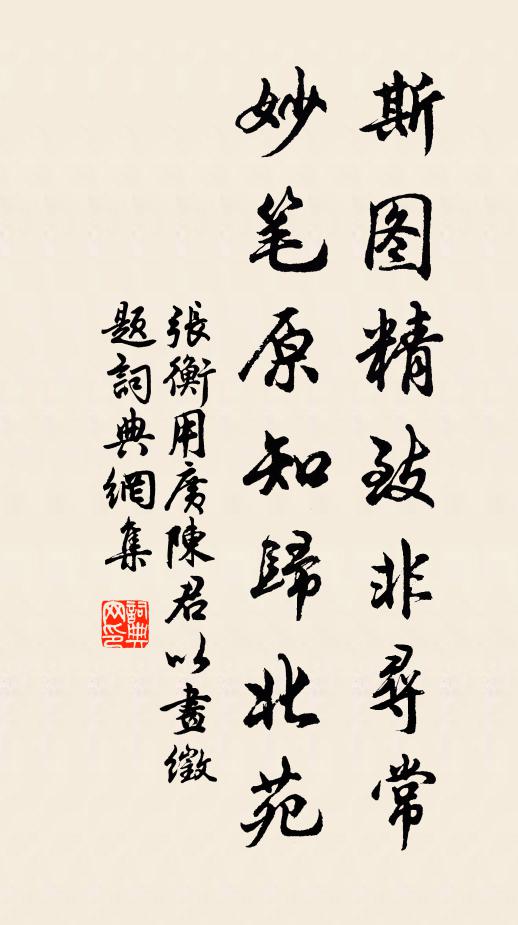 斯图精致非尋常
妙笔原知歸北苑
張衡用廣陳君以畫徵
題詞典網集
詞典网印